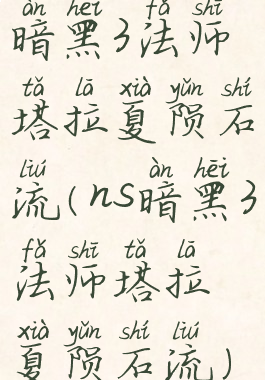 àn hēi fǎ shī
暗黑3法师
tǎ lā xià yǔn shí
塔拉夏陨石
liú àn hēi
流(ns暗黑3
fǎ shī tǎ lā
法师塔拉
xià yǔn shí liú
夏陨石流)